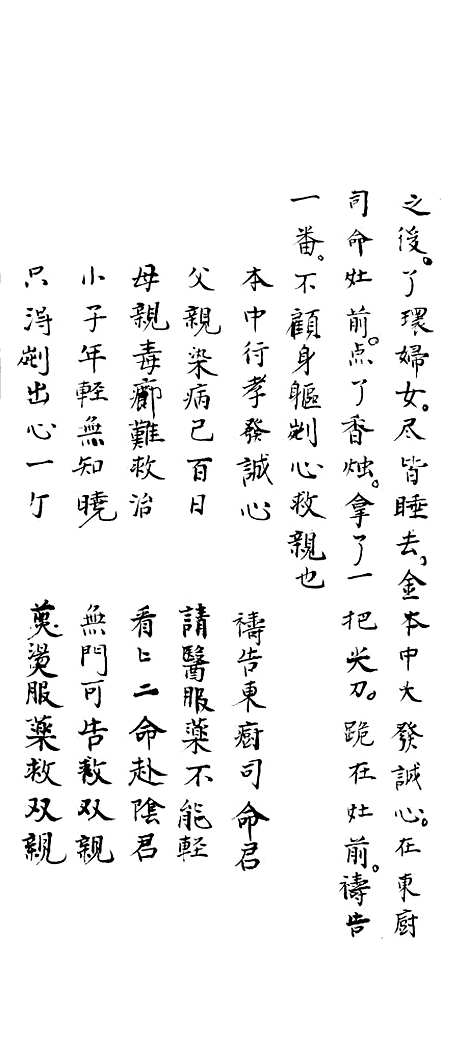 之後。了環婦女。尽皆睡去，金本中大發誠心。在東廚
司命灶前。点了香烛。拿了一把尖刀。跪在灶前。禱告
一番。不顧身軀剜心救親也
本中行孝發誠心　禱告東廚司命君
父親染病已百日　請醫服藥不能輕
母親毒癤難救治　看匕二命赴陰君
小子年輕無知曉　無門可告救双親
只得剜出心一个　煎燙服藥救双親